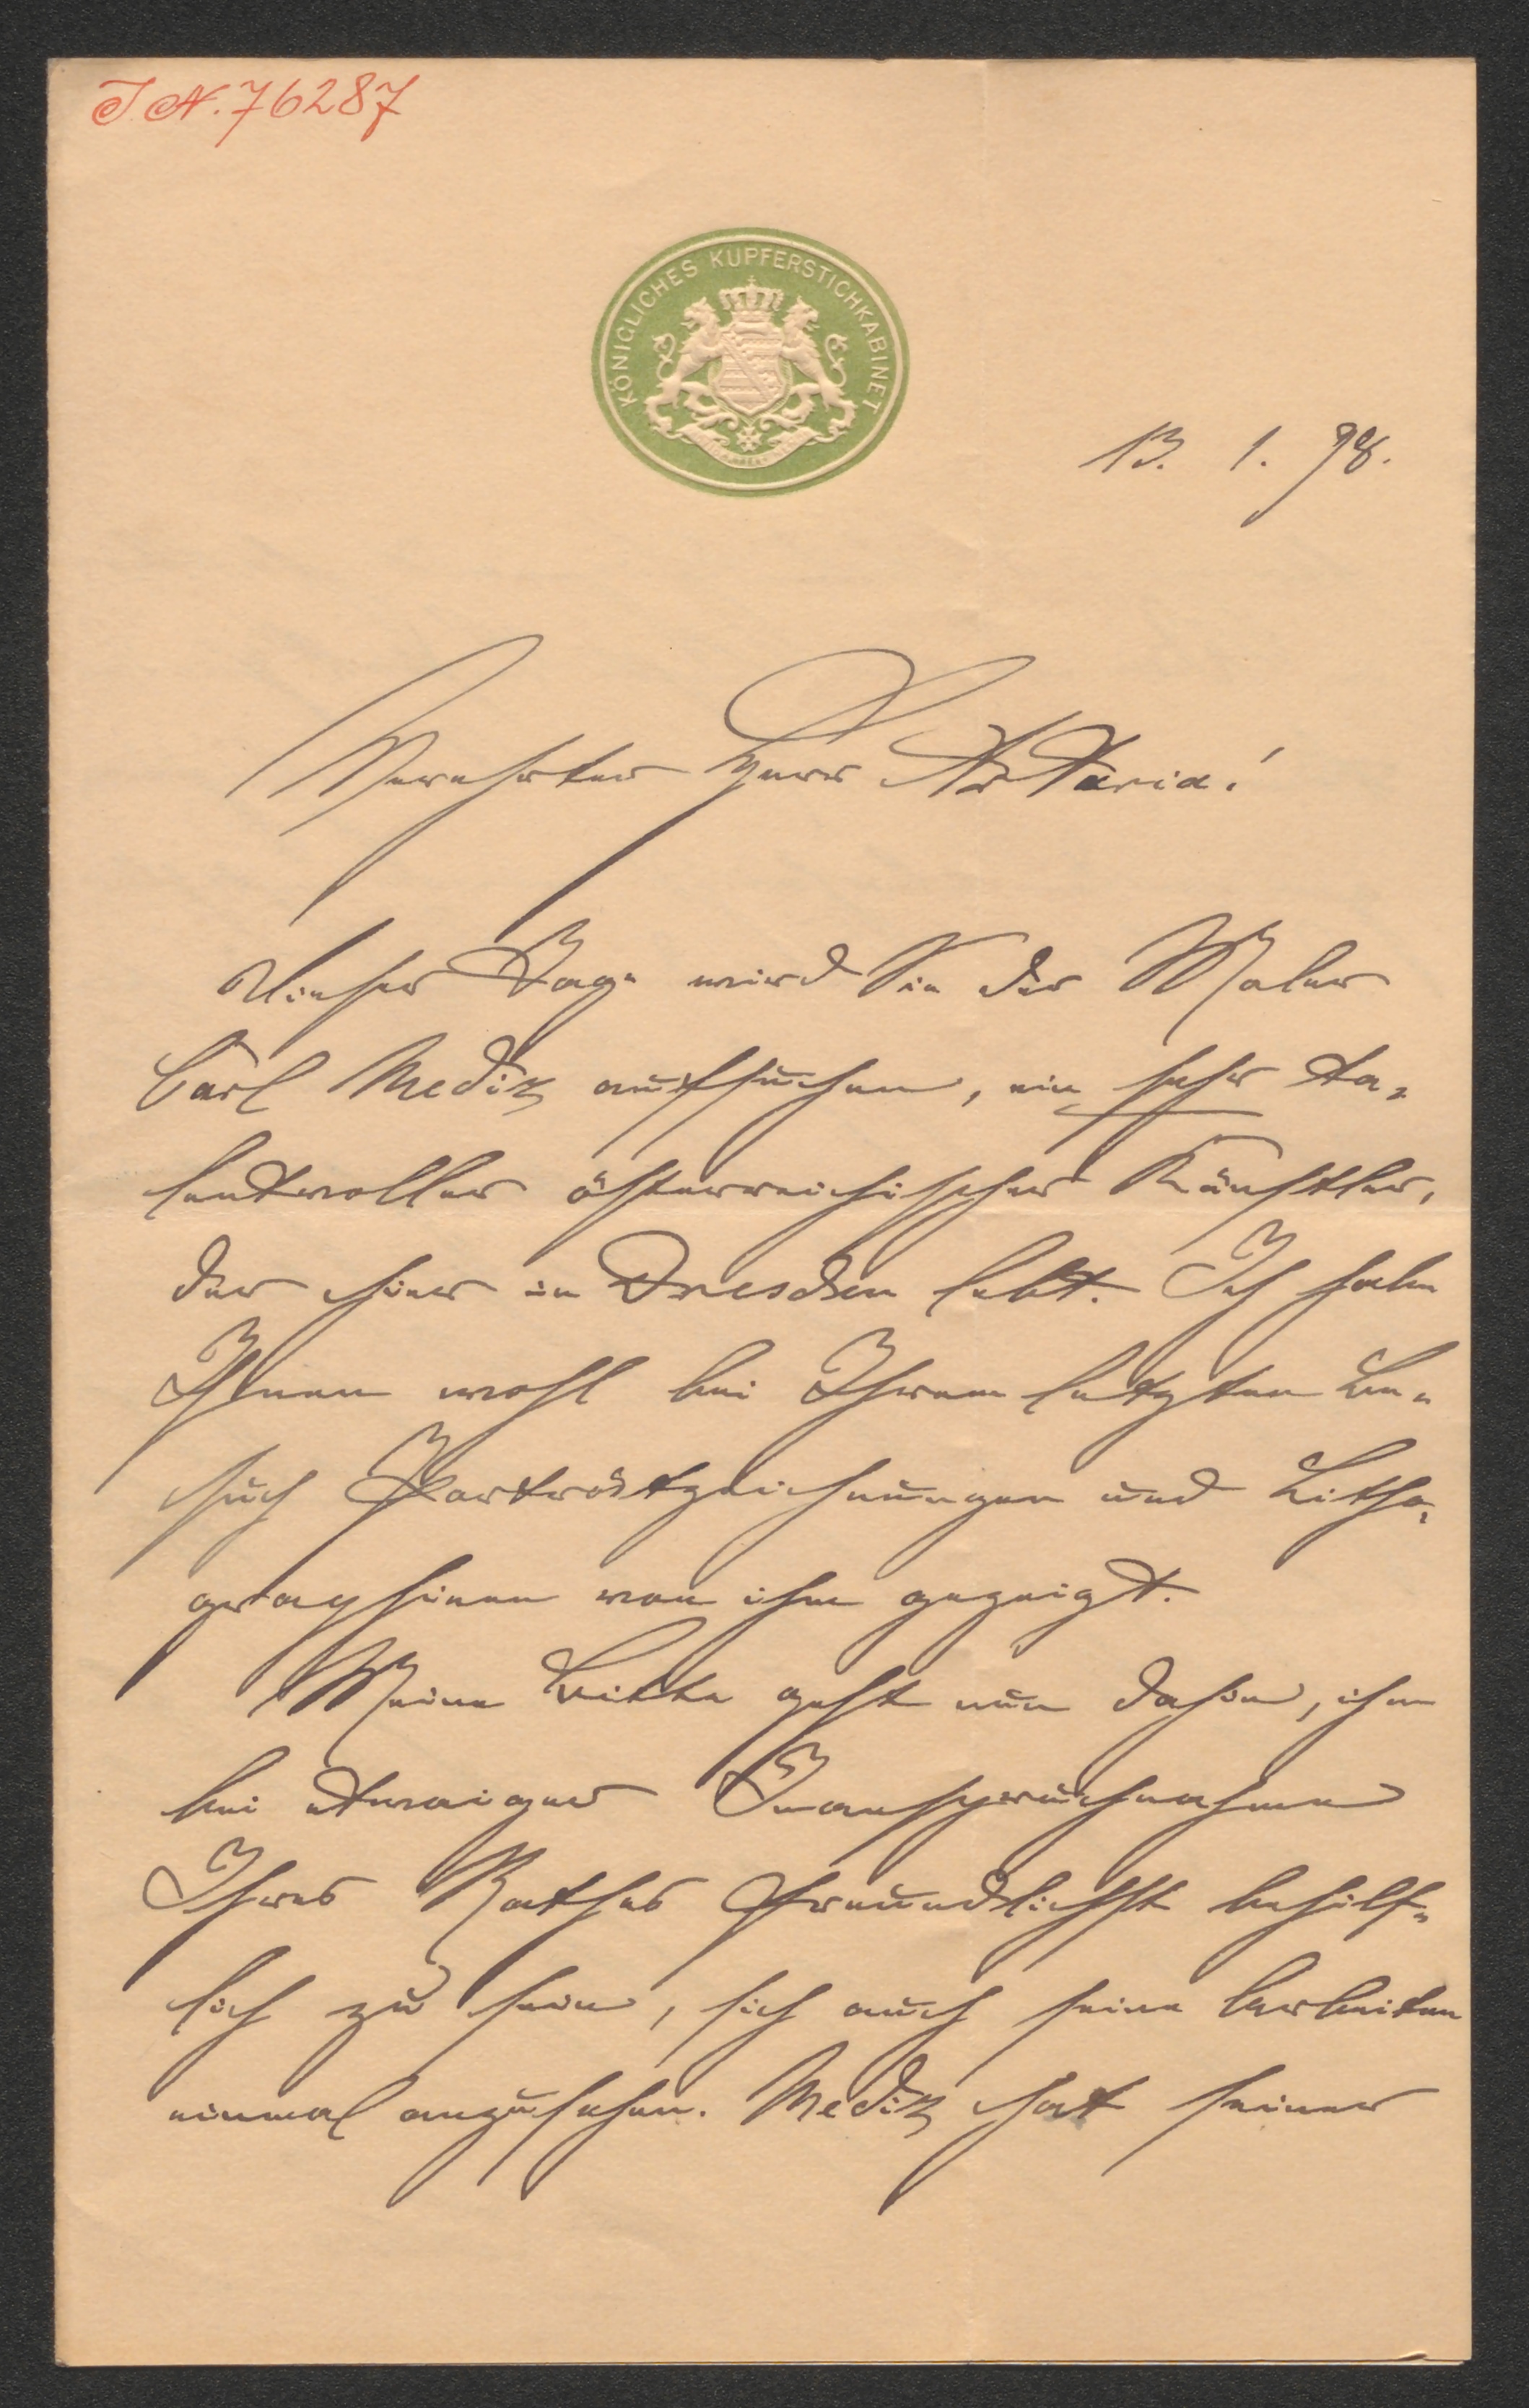 J.N. 76287
KÖNIGLICHES KUPFERSTICHKABINET
13. 1. 98.
Verehrter Herr Artaria!
Dieser Tage wird Sie der Maler
Carl Mediz aufsuchen, ein sehr ta-
lentvoller österreichischer Künstler,
der hier in Dresden lebt. Ich habe
Ihnen wohl bei Ihrem letzten Be-
such Porträtzeichnungen und Litho-
graphieen von ihm gezeigt.
Meine Bitte geht nun dahin, ihm
bei etwaiger Inanspruchnahme
Ihres Rathes freundlichst behilf-
lich zu sein, sich auch seine Arbeiten
einmal anzusehen. Mediz hat seiner